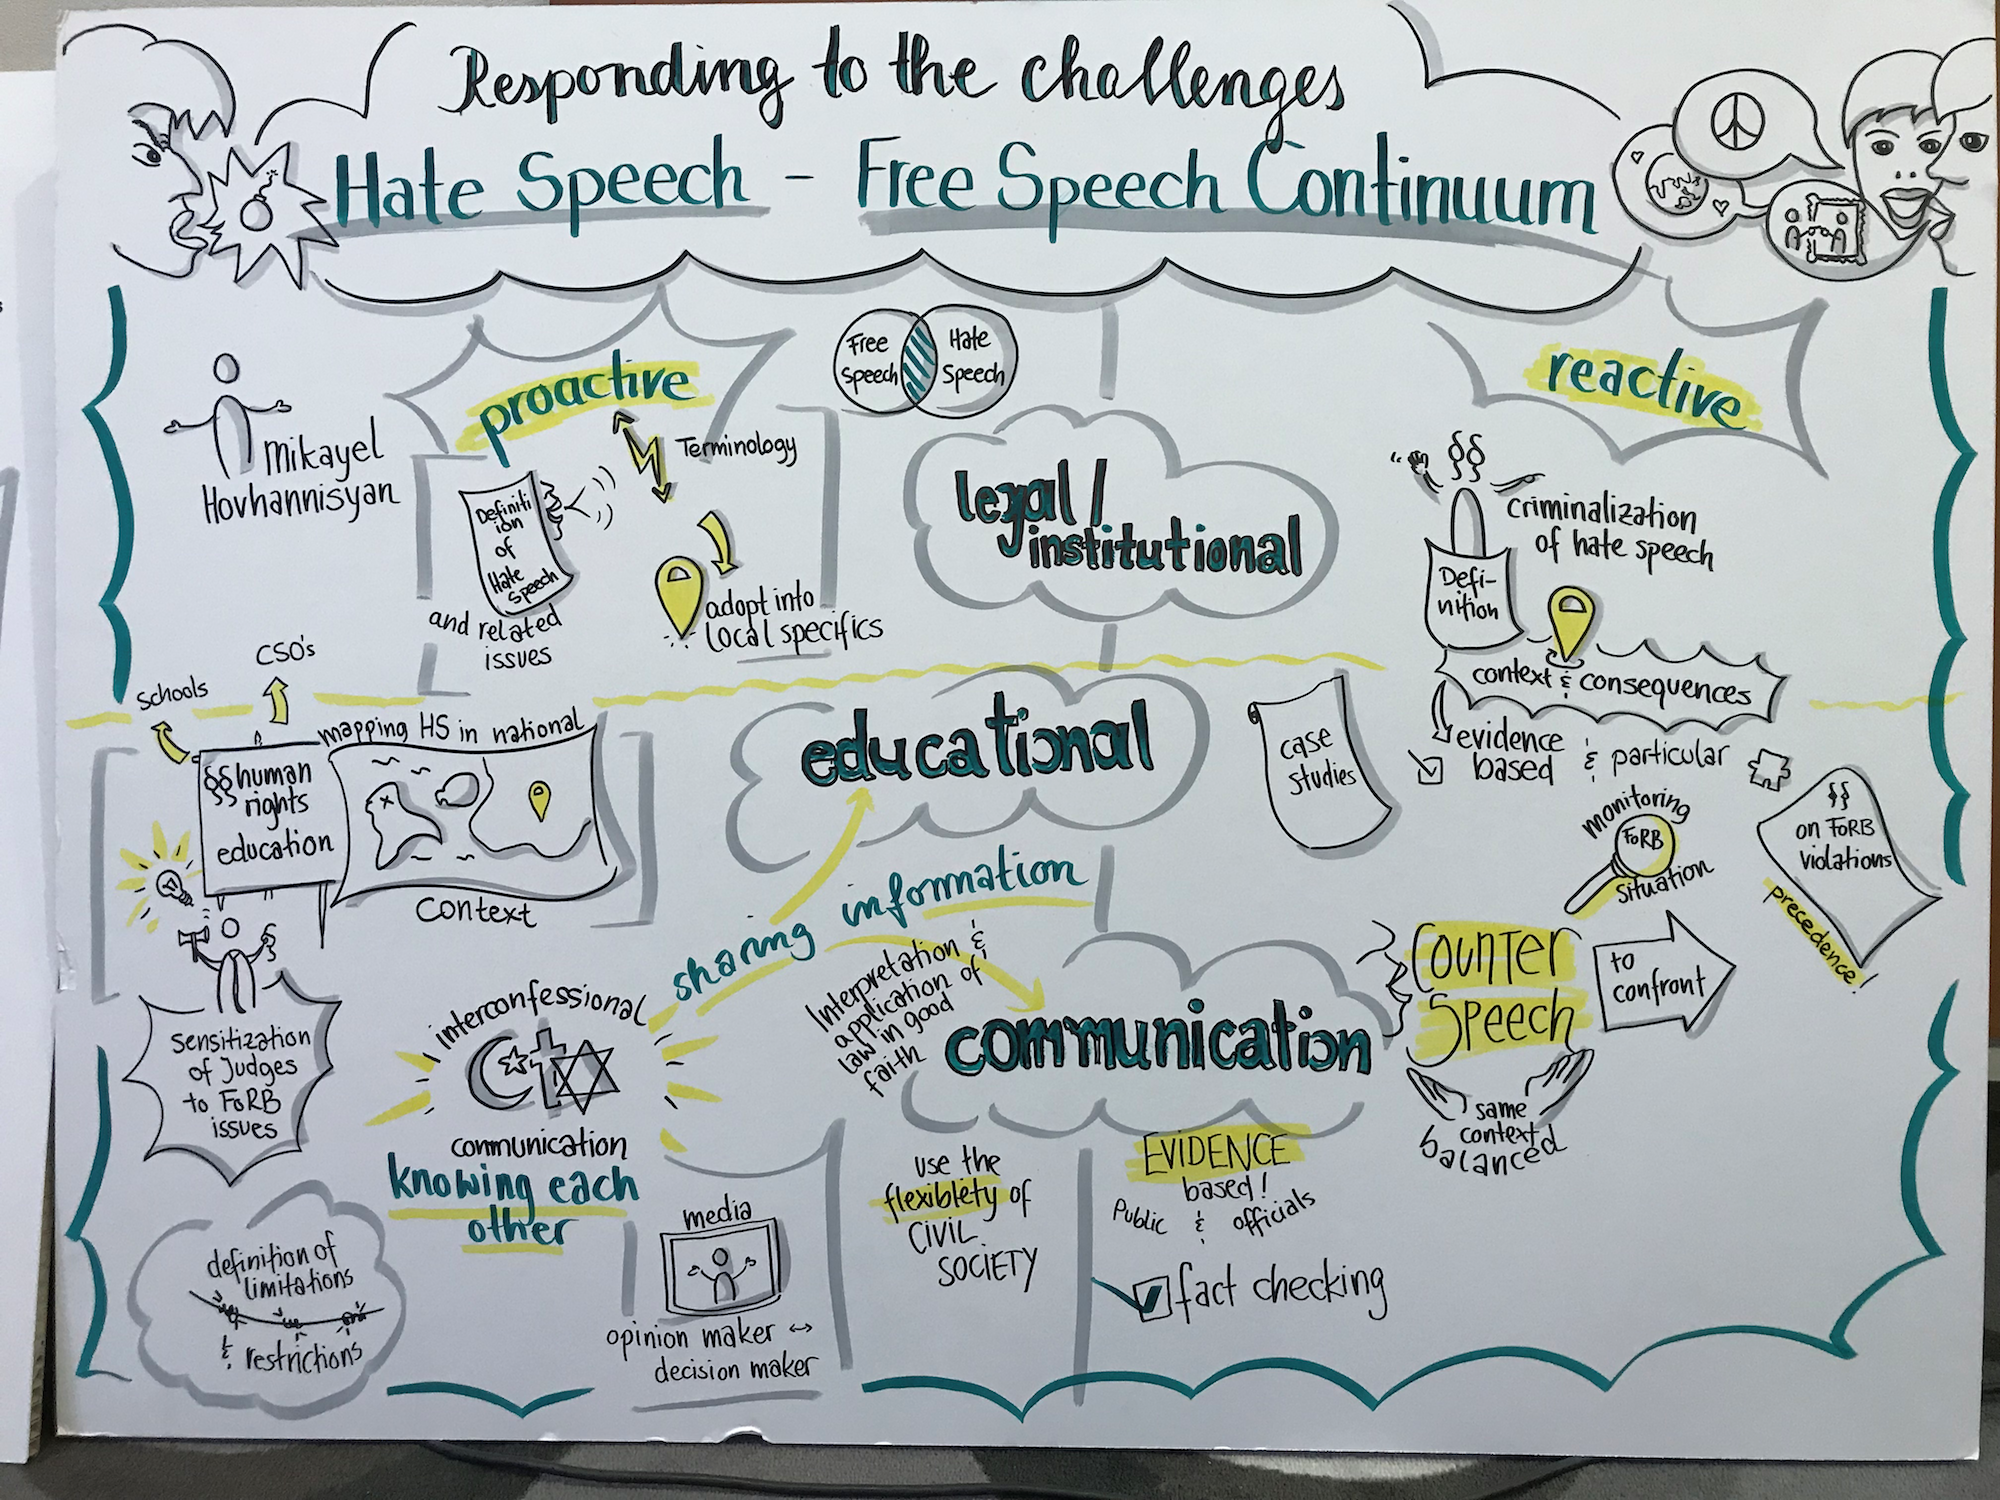 Responding to the challenges
Hate Speech - Free Speech Continuum
Mikayel
Hovhannisyan
proactive
Terminology
Definiti
ion
of
Hate
Speech
and related
issues
adopt into
local specifics
Free
Speech
Hate
Speech
legal/
institutional
reactive
§§
criminalization
of hate speech
Defi-
nition
context & consequences
evidence
based
& particular
monitoring
FoRB
situation
§§
on FoRB
violations
precedence!
case
studies
educational
CSO's
schools
§§ human
rights
education
mapping HS in national
context
Sensitization
of Judges
to FoRB
issues
sharing information
Interpretation &
application of
law in good
faith
communication
COUNTER
SPEECH
to
confront
same
context
balanced
interconfessional
communication
knowing each
other
definition of
limitations
& restrictions
media
opinion maker ↔
decision maker
use the
flexiblety of
CIVIL
SOCIETY
EVIDENCE
based!
Public & officials
fact checking